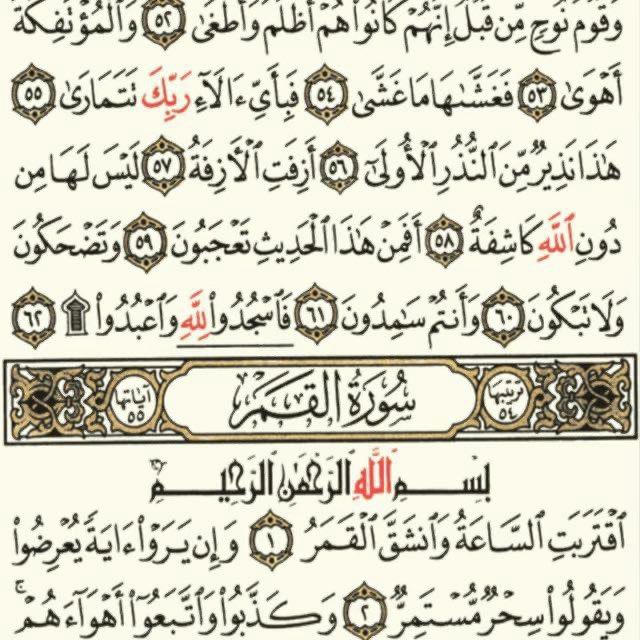 وَقَوْمَ نُوحٍ مِّن قَبْلُ إِنَّهُمْ كَانُوا۟ هُمْ أَظْلَمَ وَأَطْغَىٰ ٥٢ وَٱلْمُؤْتَفِكَةَ
أَهْوَىٰ ٥٣ فَغَشَّىٰهَا مَا غَشَّىٰ ٥٤ فَبِأَىِّ ءَالَآءِ رَبِّكَ تَتَمَارَىٰ ٥٥
هَٰذَا نَذِيرٌ مِّنَ ٱلنُّذُرِ ٱلْأُولَىٰٓ ٥٦ أَزِفَتِ ٱلْأَزِفَةُ ٥٧ لَيْسَ لَهَا مِن
دُونِ ٱللَّهِ كَاشِفَةٌ ٥٨ أَفَمِنْ هَٰذَا ٱلْحَدِيثِ تَعْجَبُونَ ٥٩ وَتَضْحَكُونَ
وَلَا تَبْكُونَ ٦٠ وَأَنتُمْ سَٰمِدُونَ ٦١ فَٱسْجُدُوا۟ لِلَّهِ وَٱعْبُدُوا۟ ۩ ٦٢
ترتيبها ٥٤ سُورَةُ القَمَرِ آياتها ٥٥
بِسْمِ ٱللَّهِ ٱلرَّحْمَٰنِ ٱلرَّحِيمِ
ٱقْتَرَبَتِ ٱلسَّاعَةُ وَٱنشَقَّ ٱلْقَمَرُ ١ وَإِن يَرَوْا۟ ءَايَةً يُعْرِضُوا۟
وَيَقُولُوا۟ سِحْرٌ مُّسْتَمِرٌّ ٢ وَكَذَّبُوا۟ وَٱتَّبَعُوٓا۟ أَهْوَآءَهُمْ ۚ